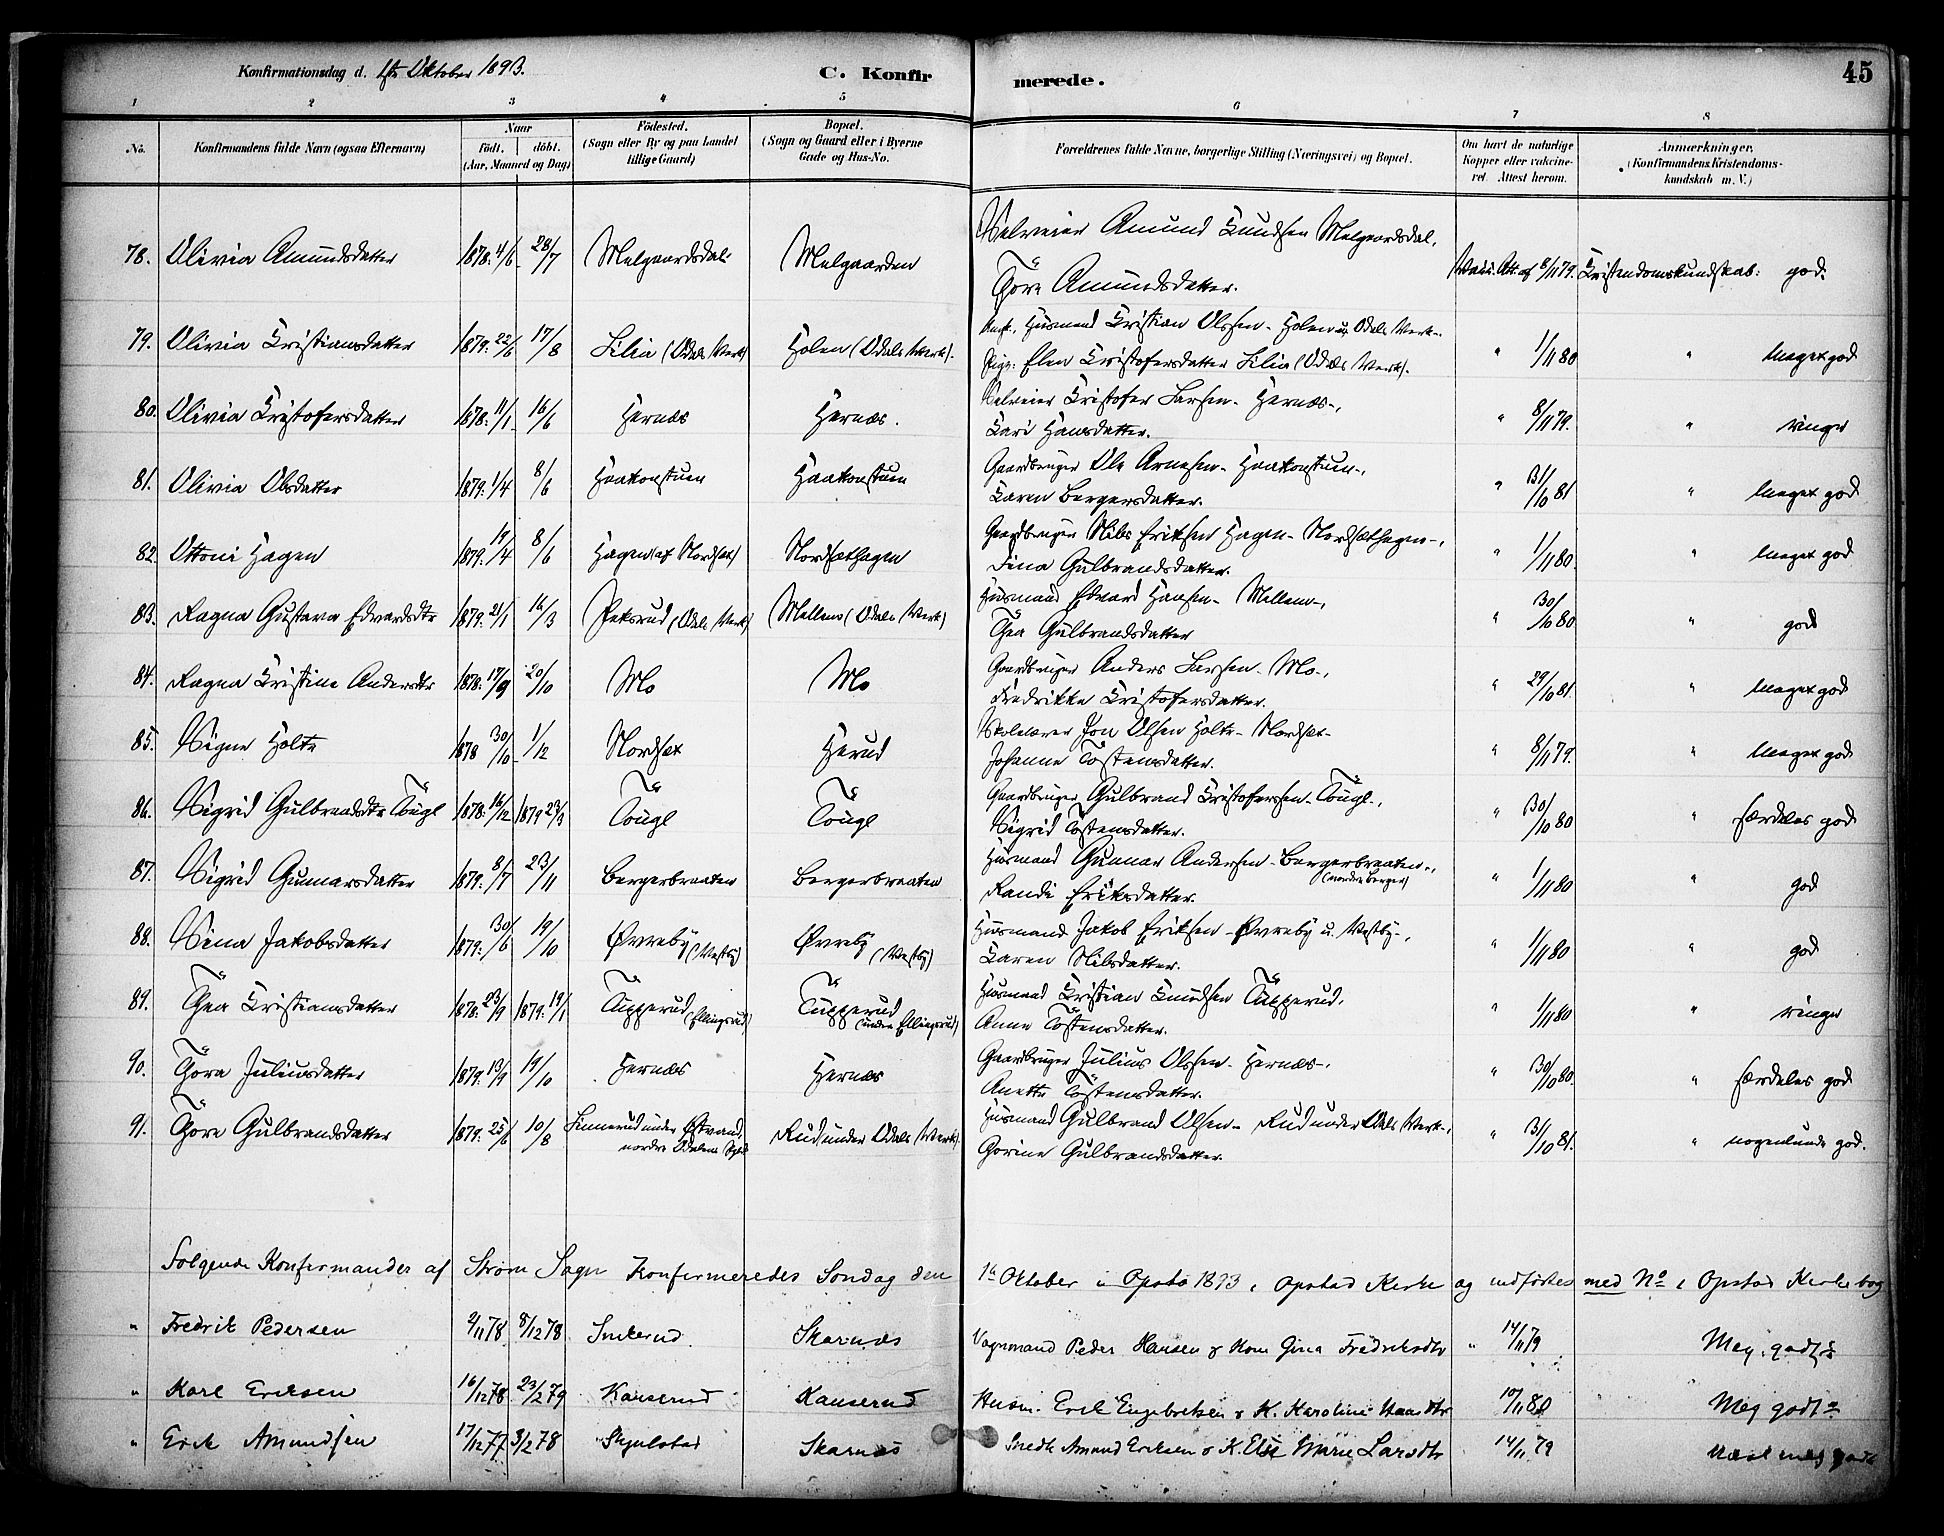 Konfirmationsdag d. 1ste Oktober 1893. C. Konfirmerede. 45
1 2 3 4 5 6 7 8
No. Konfirmandens fulde Navn (ogsaa Efternavn) Naar Födt. döbt. (Aar, Maaned og Dag) Födested. (Sogn eller By og paa Landet tillige Gaard) Bopæl. (Sogn og Gaard eller i Byerne Gade og Hus-No. Forældrenes fulde Navne, borgerlige Stilling (Næringsvei) og Bopæl. Om havt de naturlige Kopper eller vakcineret. Attest herom. Anmærkninger. (Konfirmandens Kristendomskundskab m. V.)
78. Olivia Amundsdatter 1878: 4/6 28/7 Melgaardsdal Melgaarden Selveier Amund Knudsen Melgaardsdal,
Tora Amundsdatter. Vacc. Att. af 8/11 79. Kristendomskundskab: god.
79. Olivia Kristiansdatter 1879: 22/6 17/8 Lilia (Odals Værk) Holen (Odals Værk). Husmand Kristian Olssen - Holen u. Odals Værk -
Pige: Elen Kristofersdatter Lilia (Odals Værk). " 1/11 80 " meget god
80. Olivia Kristofersdatter 1878: 11/1 16/6 Hernæs Hernæs. Selveier Kristofer Larsen - Hernæs -,
Kari Hansdatter. " 8/11 79. " ringe
81. Olivia Olsdatter 1879: 1/4 8/6 Haakonstuen Haakonstuen Gaardbruger Ole Arnesen - Haakonstuen -,
Karen Bergersdatter. " 31/10 81 " meget god
82. Ottoni Hagen 1879: 19/4 8/6 Hagen (af Nordset) Nordsæthagen Gaardbruger Nils Eriksen Hagen - Nordsæthagen -,
Dina Gulbrandsdatter. " 1/11 80. " meget god
83. Ragna Gustava Edvardsdtr 1879: 21/1 16/3 Peksrud (Odals Værk) Mellem (Odals Værk) Husmand Edvard Hansen - Mellem -,
Thea Gulbrandsdatter " 30/10 80 " god
84. Ragna Kristine Andersdtr 1878: 17/9 20/10 Mo Mo Gaardbruger Anders Larsen - Mo -,
Fredrikke Kristofersdatter. " 29/10 81. " meget god
85. Signe Holte 1878 30/10 1/12 Nordset Herud Skolelærer Jon Olsen Holte - Nordset -
Johanne Tostensdatter. " 8/11 79. " meget god
86. Sigrid Gulbrandsdtr Tougl 1878: 16/12 1879 23/3 Tougl Tougl Gaardbruger Gulbrand Kristofersen - Tougl -,
Sigrid Tostensdatter. " 30/10 80 " særdeles god
87. Sigrid Gunnarsdatter 1879: 8/7 23/11 Bergerbraaten Bergerbraaten Husmand Gunnar Andersen - Bergerbraaten -,
(nordre Berger)
Randi Eriksdatter. " 1/11 80 " god
88. Sina Jakobsdatter 1879: 30/6 19/10 Øvreby (Vestby) Øvreby (Vestby) Husmand Jakob Eriksen - Øvreby u. Vestby -,
Karen Nilsdatter. " 1/11 80 " god
89. Thea Kristiansdatter 1878: 23/9 1879: 19/1 Tupperud (Ellingsrud) Tupperud (under Ellingsrud) Husmand Kristian Knudsen Tupperud,
Anne Tostensdatter. " 1/11 80 " ringe
90. Thora Juliusdatter 1879: 13/9 19/10 Hernæs Hernæs Gaardbruger Julius Olssen - Hernæs -,
Anette Tostensdatter. " 30/10 80. " særdeles god
91. Thora Gulbrandsdatter 1879: 25/6 10/8 Linnerud under Østvand, nordre Odalens Pgld Rud under Odals Værk). Husmand Gulbrand Olsen - Rud under Odals Værk -,
Gorine Gulbrandsdatter. " 31/10 81. " nogenlunde god.
Følgende Konfirmander af Strøm Sogn Konfirmeredes Søndag den 1ste Oktober 1893 i Opstad Kirke og indførtes med No i Opstad Kirkebog
" Fredrik Pedersen 9/11 78 8/12 78 Skarnæs Vognmand Peder Hansen & Kone Gina Fredriksdtr " 14/11 79 Meg. godt
" Karl Eriksen 16/12 78 23/2 79 Kanserud Kanserud Husm. Erik Engebretsen & K. Karoline Hansdtr 10/11 80 Meg godt
" Erik Amundsen 17/12 77 3/2 78 Skjulstad Skarnæs Snedk Amund Eriksen & K. Else Marie Larsdtr 14/11 79 meg godt